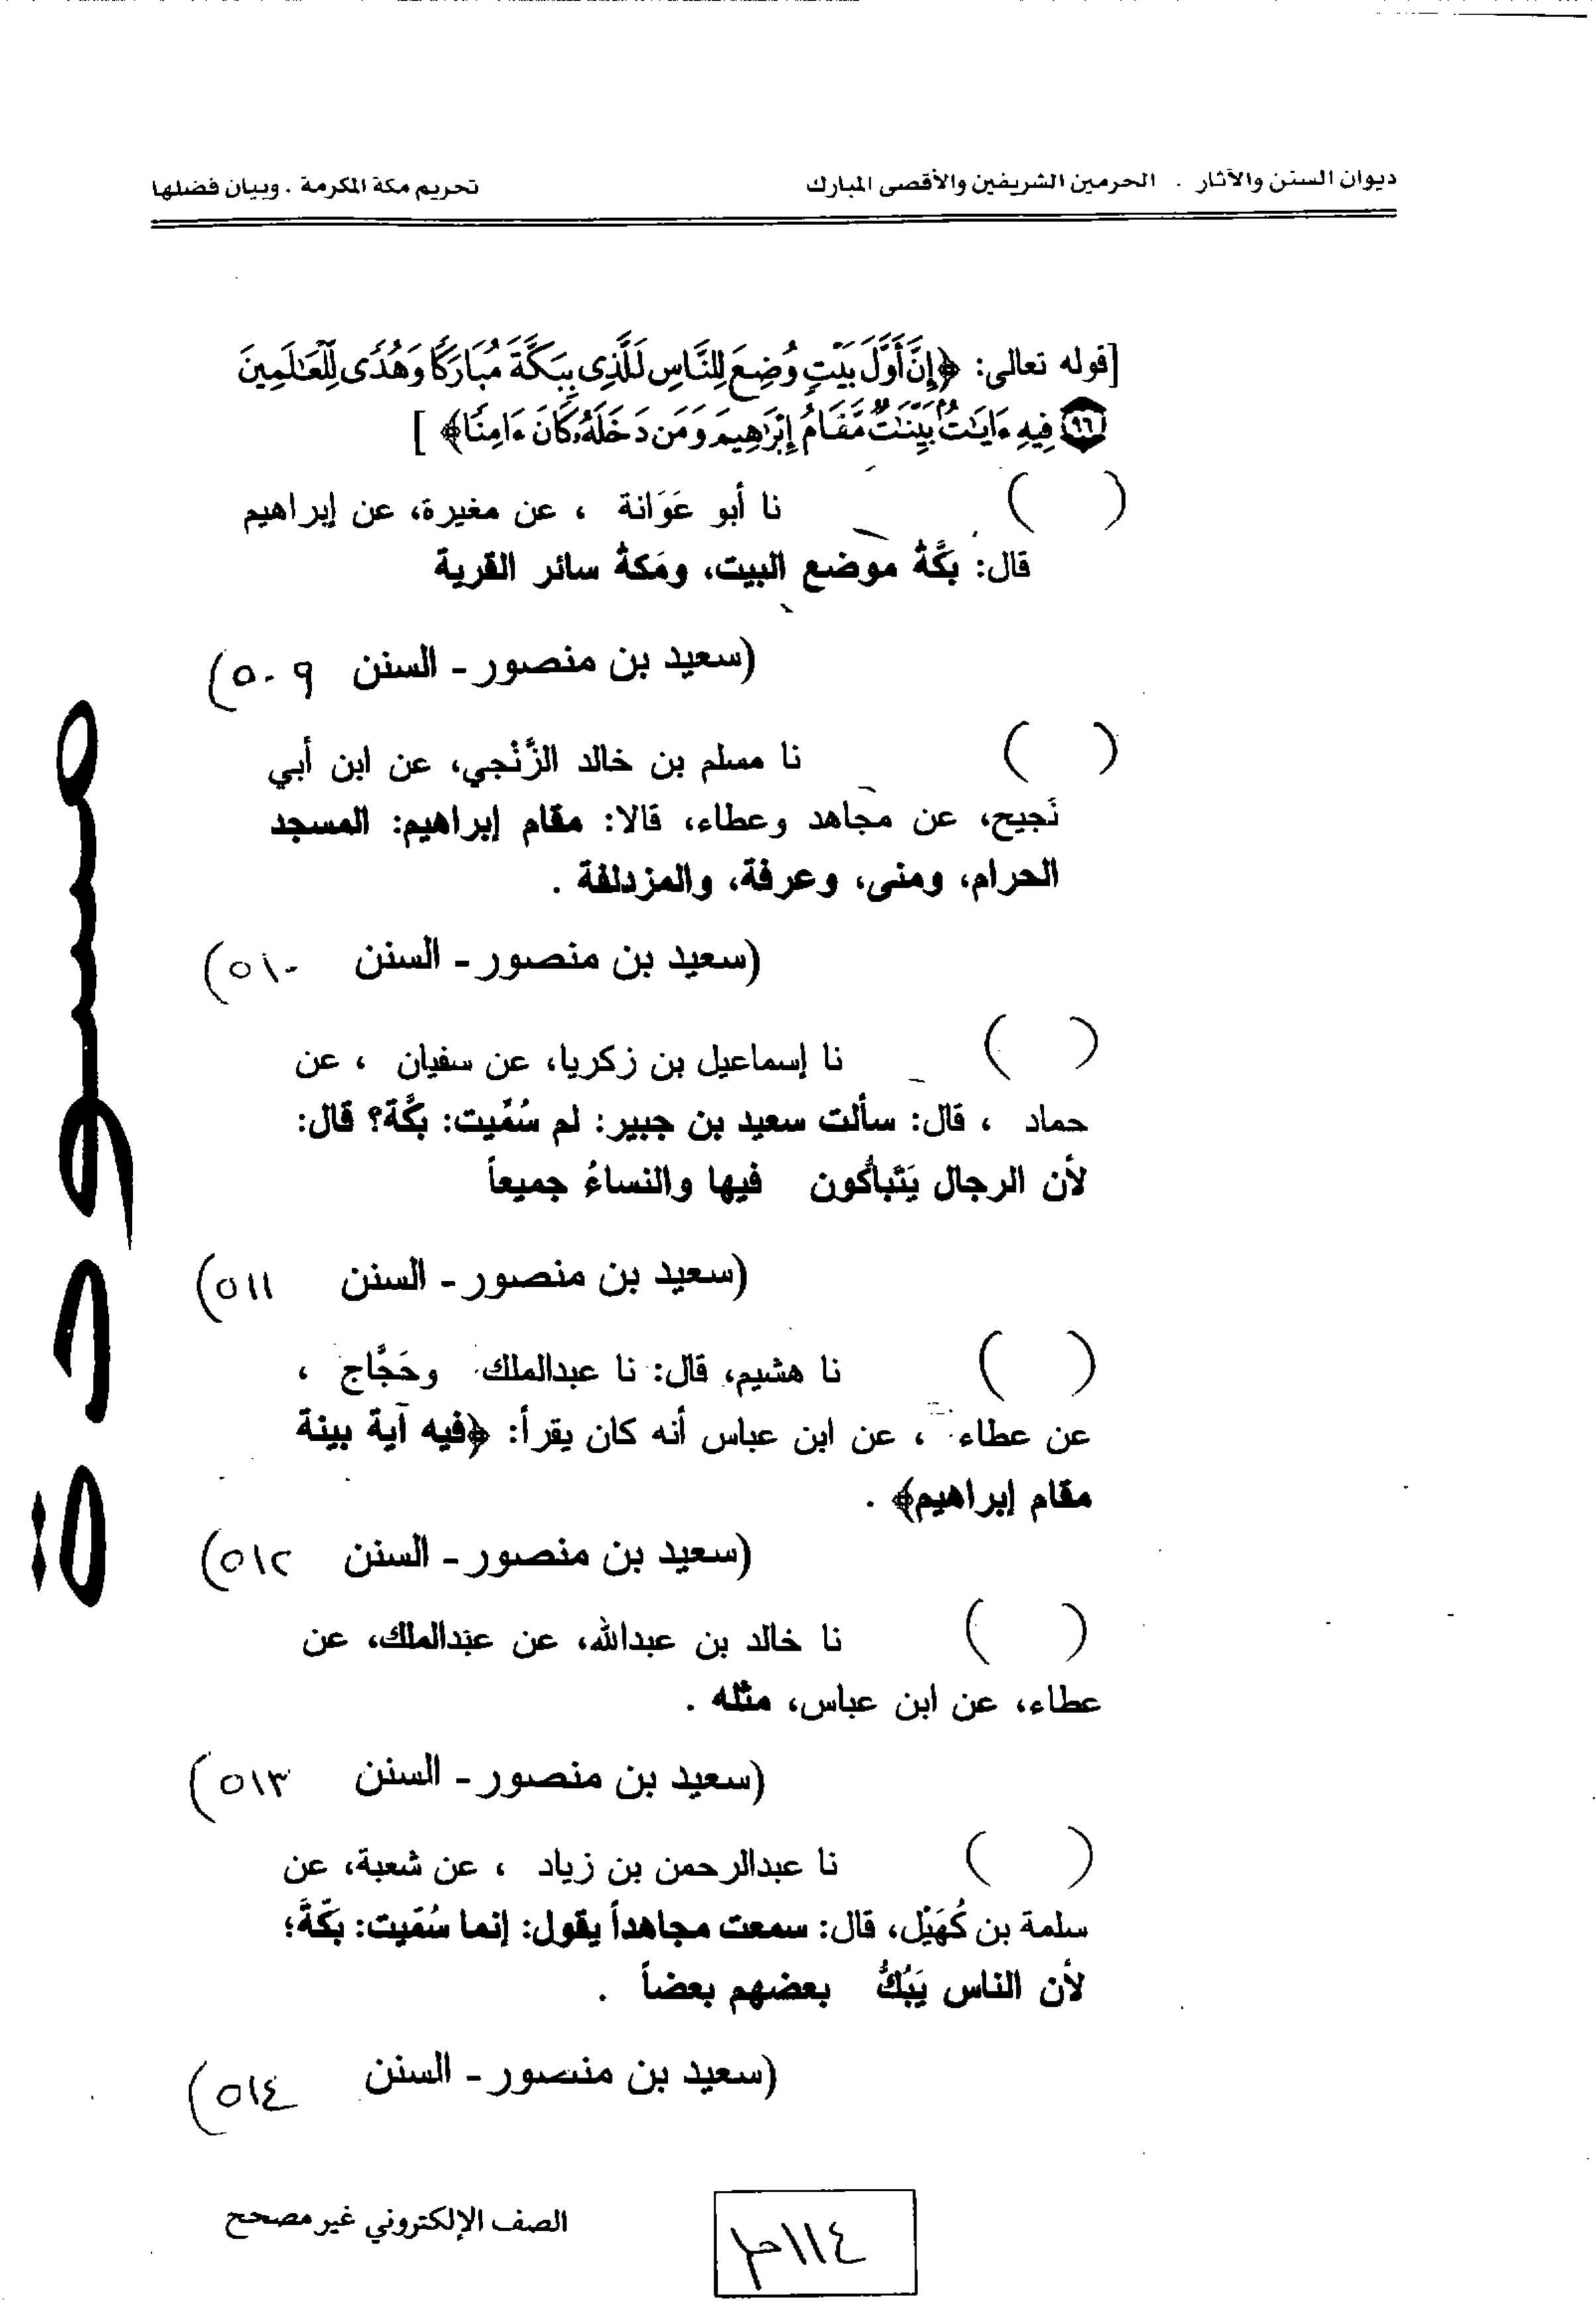 ديوان السنن والآثار . الحرمين الشريفين والأقصى المبارك تحريم مكة المكرمة . وبيان فضلها
[قوله تعالى: ﴿إِنَّ أَوَّلَ بَيْتٍ وُضِعَ لِلنَّاسِ لَلَّذِى بِبَكَّةَ مُبَارَكًا وَهُدًى لِّلْعَـٰلَمِينَ
٩٦ فِيهِ ءَايَـٰتٌۢ بَيِّنَـٰتٌ مَّقَامُ إِبْرَٰهِيمَ وَمَن دَخَلَهُۥ كَانَ ءَامِنًا﴾ ]
( ) نا أبو عَوَانة ، عن مغيرة، عن إبراهيم
قال: بَكَّةُ موضع البيت، ومَكةُ سائر القرية
(سعيد بن منصور - السنن ٥٠٩)
( ) نا مسلم بن خالد الزَّنْجي، عن ابن أبي
نَجيح، عن مجاهد وعطاء، قالا: مقام إبراهيم: المسجد
الحرام، ومنى، وعرفة، والمزدلفة .
(سعيد بن منصور - السنن ٥١٠)
( ) نا إسماعيل بن زكريا، عن سفيان ، عن
حماد ، قال: سألت سعيد بن جبير: لم سُمِّيت: بَكَّة؟ قال:
لأن الرجال يَتَباكُّون فيها والنساءُ جميعاً
(سعيد بن منصور - السنن ٥١١)
( ) نا هشيم، قال: نا عبدالملك وحَجَّاج ،
عن عطاء ، عن ابن عباس أنه كان يقرأ: ﴿فيه آية بينة
مقام إبراهيم﴾ .
(سعيد بن منصور - السنن ٥١٢)
( ) نا خالد بن عبدالله، عن عبدالملك، عن
عطاء، عن ابن عباس، مثله .
(سعيد بن منصور - السنن ٥١٣)
( ) نا عبدالرحمن بن زياد ، عن شعبة، عن
سلمة بن كُهَيْل، قال: سمعت مجاهداً يقول: إنما سُمِّيت: بَكَّةَ؛
لأن الناس يَبُكُّ بعضهم بعضاً .
(سعيد بن منصور - السنن ٥١٤)
مسودة
الصف الإلكتروني غير مصحح
١١٤